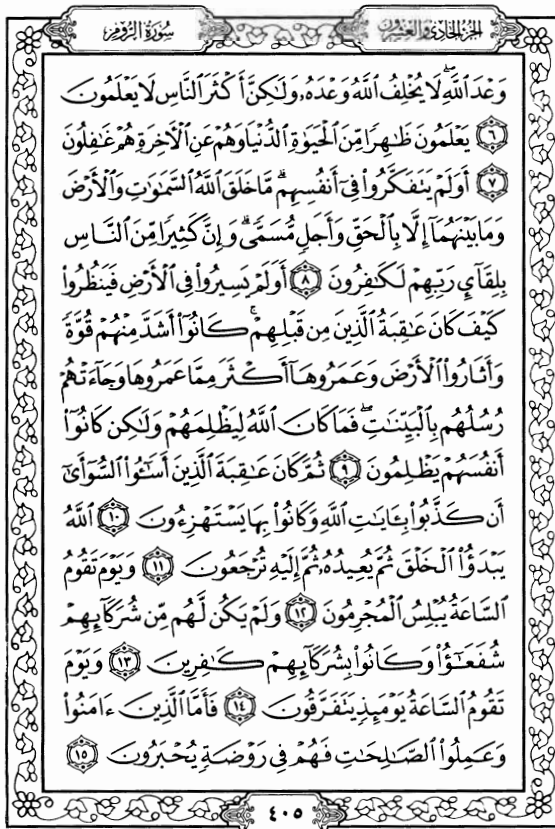 سُورَةُ الرُّومِ
الجُزْءُ الحَادِي وَالعِشْرُونَ
وَعْدَ ٱللَّهِۖ لَا يُخْلِفُ ٱللَّهُ وَعْدَهُۥ وَلَٰكِنَّ أَكْثَرَ ٱلنَّاسِ لَا يَعْلَمُونَ
٦ يَعْلَمُونَ ظَٰهِرٗا مِّنَ ٱلْحَيَوٰةِ ٱلدُّنْيَا وَهُمْ عَنِ ٱلْءَاخِرَةِ هُمْ غَٰفِلُونَ
٧ أَوَلَمْ يَتَفَكَّرُوا۟ فِىٓ أَنفُسِهِمۗ مَّا خَلَقَ ٱللَّهُ ٱلسَّمَٰوَٰتِ وَٱلْأَرْضَ
وَمَا بَيْنَهُمَآ إِلَّا بِٱلْحَقِّ وَأَجَلٖ مُّسَمّٗىۗ وَإِنَّ كَثِيرٗا مِّنَ ٱلنَّاسِ
بِلِقَآئِ رَبِّهِمْ لَكَٰفِرُونَ ٨ أَوَلَمْ يَسِيرُوا۟ فِى ٱلْأَرْضِ فَيَنظُرُوا۟
كَيْفَ كَانَ عَٰقِبَةُ ٱلَّذِينَ مِن قَبْلِهِمْۚ كَانُوٓا۟ أَشَدَّ مِنْهُمْ قُوَّةٗ
وَأَثَارُوا۟ ٱلْأَرْضَ وَعَمَرُوهَآ أَكْثَرَ مِمَّا عَمَرُوهَا وَجَآءَتْهُمْ
رُسُلُهُم بِٱلْبَيِّنَٰتِۖ فَمَا كَانَ ٱللَّهُ لِيَظْلِمَهُمْ وَلَٰكِن كَانُوٓا۟
أَنفُسَهُمْ يَظْلِمُونَ ٩ ثُمَّ كَانَ عَٰقِبَةَ ٱلَّذِينَ أَسَٰٓـُٔوا۟ ٱلسُّوٓأَىٰٓ
أَن كَذَّبُوا۟ بِـَٔايَٰتِ ٱللَّهِ وَكَانُوا۟ بِهَا يَسْتَهْزِءُونَ ١٠ ٱللَّهُ
يَبْدَؤُا۟ ٱلْخَلْقَ ثُمَّ يُعِيدُهُۥ ثُمَّ إِلَيْهِ تُرْجَعُونَ ١١ وَيَوْمَ تَقُومُ
ٱلسَّاعَةُ يُبْلِسُ ٱلْمُجْرِمُونَ ١٢ وَلَمْ يَكُن لَّهُم مِّن شُرَكَآئِهِمْ
شُفَعَٰٓؤُا۟ وَكَانُوا۟ بِشُرَكَآئِهِمْ كَٰفِرِينَ ١٣ وَيَوْمَ
تَقُومُ ٱلسَّاعَةُ يَوْمَئِذٖ يَتَفَرَّقُونَ ١٤ فَأَمَّا ٱلَّذِينَ ءَامَنُوا۟
وَعَمِلُوا۟ ٱلصَّٰلِحَٰتِ فَهُمْ فِى رَوْضَةٖ يُحْبَرُونَ ١٥
٤٠٥